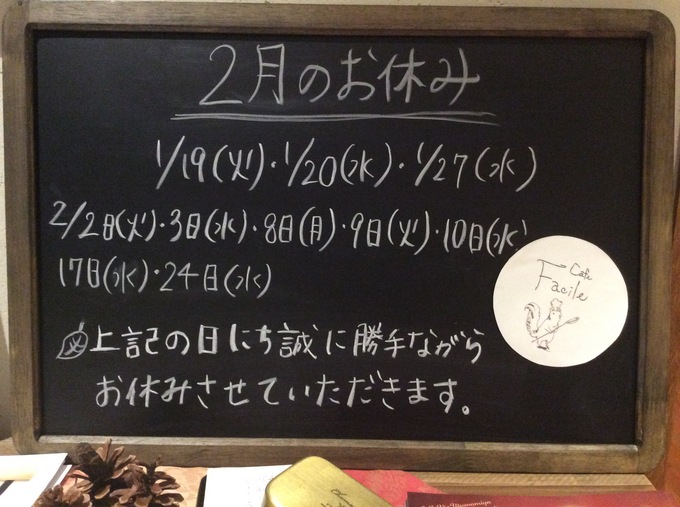 2月のお休み
1/19(火)・1/20(水)・1/27(水)
2/2日(火)・3日(水)・8日(月)・9日(火)・10日(水)
17日(水)・24日(水)
上記の日にち誠に勝手ながら
お休みさせていただきます。
Cafe
Facile